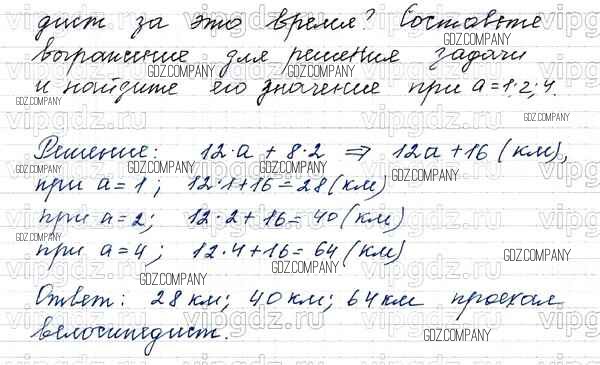 дист за это время? Составьте
выражение для решения задачи
и найдите его значение при a=1; 2; 4.
Решение: 12·a + 8·2 ⇒ 12a + 16 (км),
при a = 1; 12·1+16 = 28 (км)
при a = 2; 12·2 + 16 = 40 (км)
при a = 4; 12·4+16 = 64 (км)
Ответ: 28 км; 40 км; 64 км проехал
велосипедист.
GDZ.COMPANY
vipgdz.ru